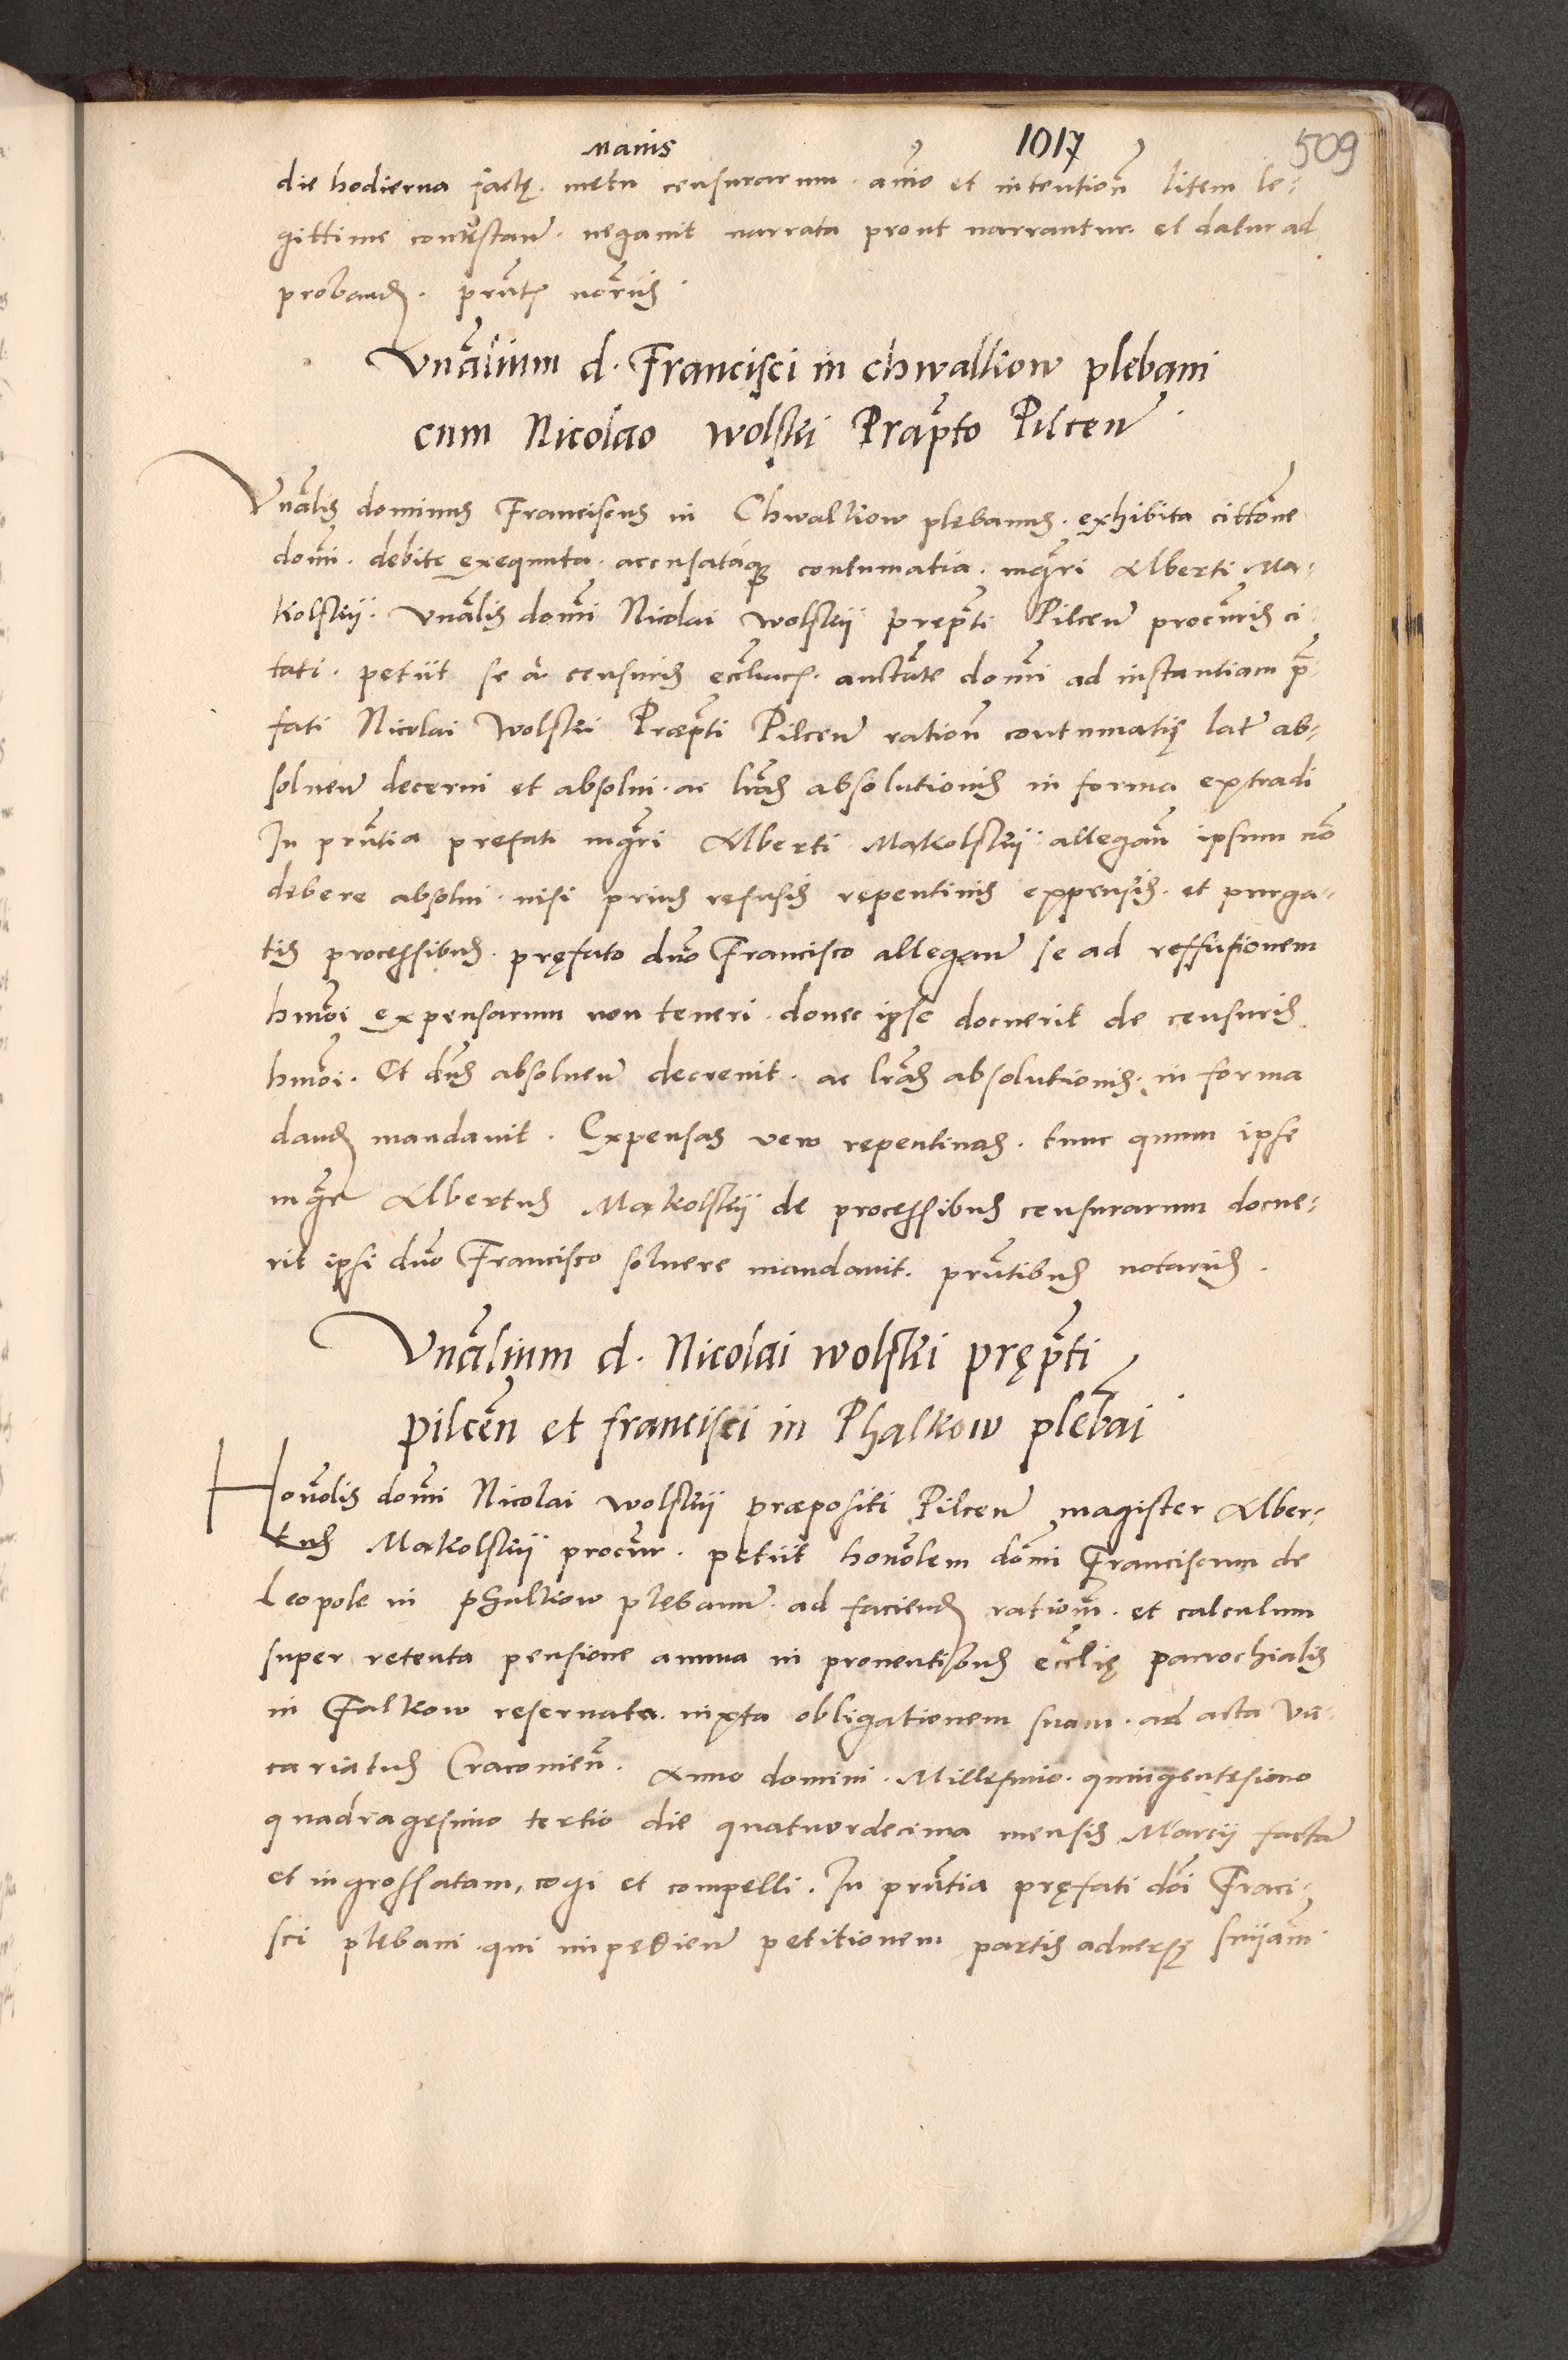 Maiis 1017 509
die hodierna factę. metu censurarum. a͞io et intention͂ litem le-
gittime contestan͂. negauit narrata prout narrantur. et datur ad
proband. pn̄tƺ notarijs.
Vn͞alium d. Francisci in chwalkow plebani
cum Nicolao wolski Præp͞to Pilcen͂
Vn͞alis dominus Franciscus in Chwalkow plebanus. exhibita citt͞one
dom͞i. debite exequuta. accusatáqƺ contumatia. mgr͞i Alberti Ma-
kolskij. Vn͞alis dom͞i Nicolai wolskij prep͞ti Pilcen͂ procu͞ris ci-
tati. petijt se à censuris eccl͞iacƺ. auct͞ate dom͞i ad instantiam p͞-
fati Nicolai Wolski Præp͞ti Pilcen͂ ration͂ contumatię lat͂ ab-
soluen͂ decerni et absolui. ac lr͞as absolutionis in forma extradi
In pn͞tia prefati mgr͞i Alberti Makolskij allegan͂ ipsum no͞
debere absolui. nisi prius refusis repentinis expensis. et purga-
tis processibus. pręfato dn͞o Francisco allegan͂ se ad reffusionem
hmo͞i expensarum non teneri. donec ipse docuerit de censuris
hmo͞i. Et dn͞s absoluen͂ decreuit. ac lr͞as absolutionis. in forma
dand mandauit. Expensas vero repentinas. tunc quum ipse
mgr͞ Albertus Makolskij de processibus censurarum docue-
rit ipsi dn͞o Francisco soluere mandauit. pn͞tibus notarijs.
Vn͞alium d. Nicolai wolski pręp͞ti
pilce͞n et francisci in Phalkow pleb͞ai
Hon͞olis dom͞i Nicolai wolskij præpositi Pilcen͂ magister Alber-
tus Makolskij procu͞r. petijt hon͞olem do͞m͞i Franciscum de
Leopole in phalkow plebanu͞. ad faciend ration͞m. et calculum
super retenta pensione annua in prouentibus eccl͞ię parrochialis
in Falkow reseruata. iuxta obligationem suam. ad acta Vi-
cariatus Cracouien͞. Anno domini. Millesimo. quingentesimo
quadragesimo tertio die quatuordecima mensis Marcij facta͞
et ingrossatam, cogi et compelli. In pn͞tia pręfati do͞i Fra͞ci-
sci plebani. qui impedien͂ petitionem partis aduersę